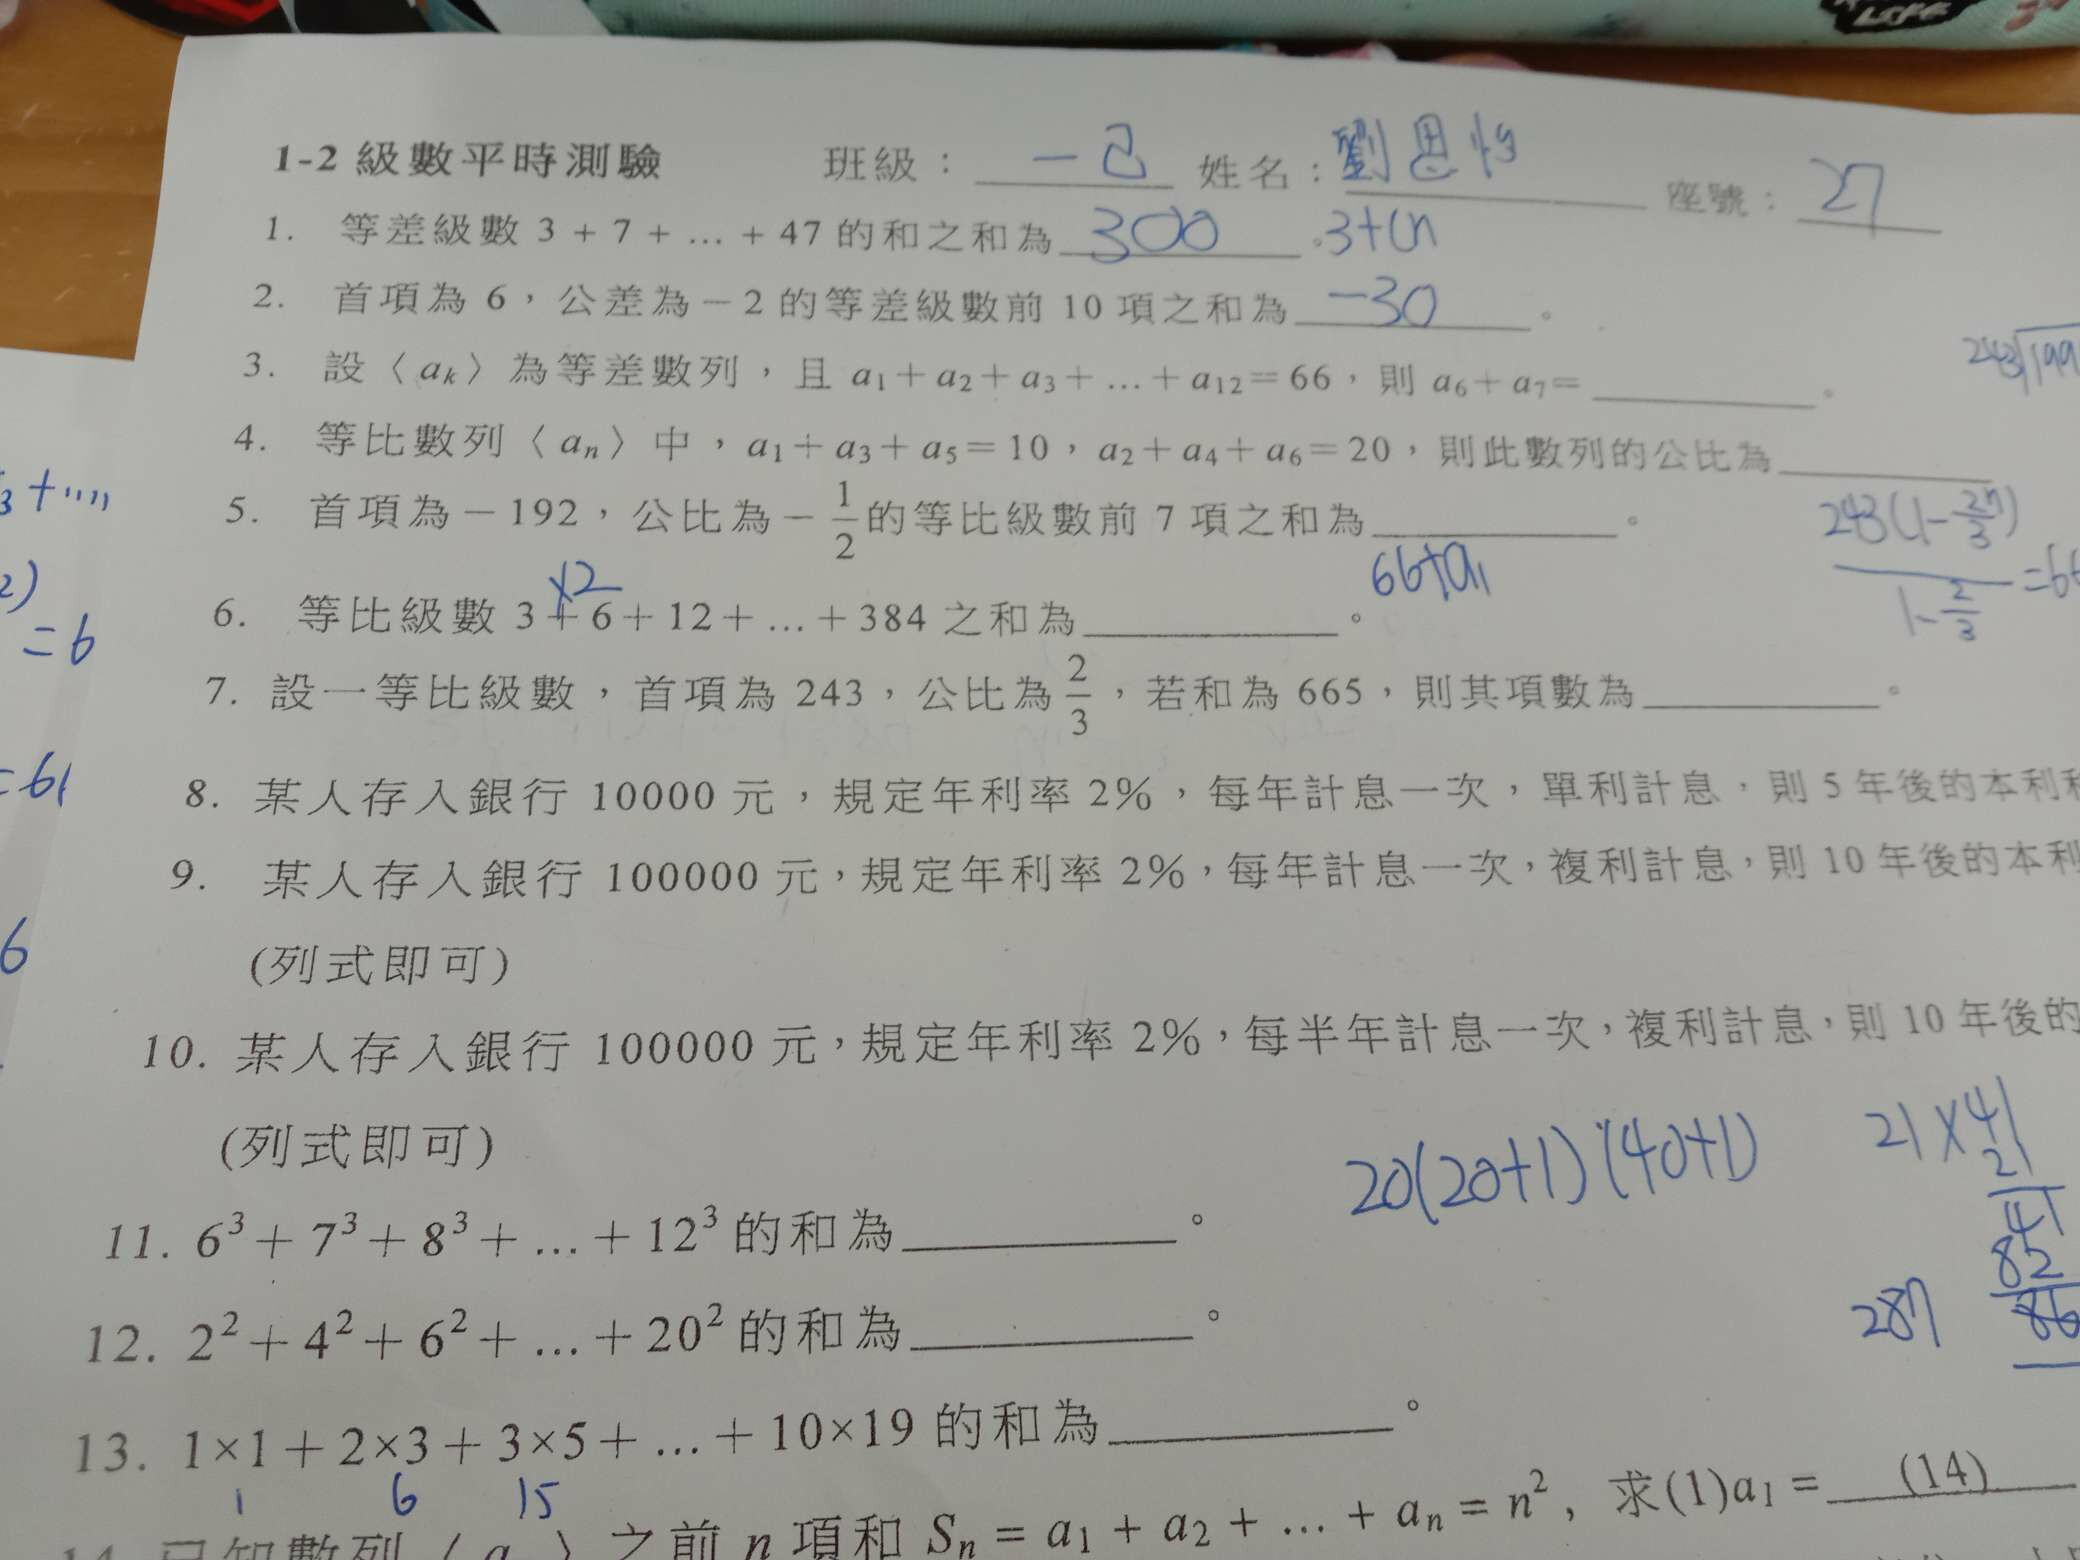 Life
1-2 級數平時測驗 班級: 一己 姓名: 劉恩怡 座號: 27
1. 等差級數 3 + 7 + … + 47 的和之和為 300 。 3+(n
2. 首項為 6，公差為－2 的等差級數前 10 項之和為 -30 。
243
3. 設〈ak〉為等差數列，且 a1＋a2＋a3＋…＋a12＝66，則 a6＋a7＝ 。
4. 等比數列〈an〉中，a1＋a3＋a5＝10，a2＋a4＋a6＝20，則此數列的公比為
5. 首項為－192，公比為－1/2 的等比級數前 7 項之和為 。
66+a11
×2
6. 等比級數 3＋6＋12＋…＋384 之和為 。
7. 設一等比級數，首項為 243，公比為 2/3，若和為 665，則其項數為 。
8. 某人存入銀行 10000 元，規定年利率 2%，每年計息一次，單利計息，則 5 年後的本利
9. 某人存入銀行 100000 元，規定年利率 2%，每年計息一次，複利計息，則 10 年後的本利
(列式即可)
10. 某人存入銀行 100000 元，規定年利率 2%，每半年計息一次，複利計息，則 10 年後的
(列式即可)
20(20+1)(40+1)
21×41
21
41
82
287
86
11. 6³＋7³＋8³＋…＋12³ 的和為 。
12. 2²＋4²＋6²＋…＋20² 的和為 。
13. 1×1＋2×3＋3×5＋…＋10×19 的和為 。
1 6 15
之前 n 項和 Sn = a1 + a2 + … + an = n²，求(1)a1 = (14)
=6
=61
6